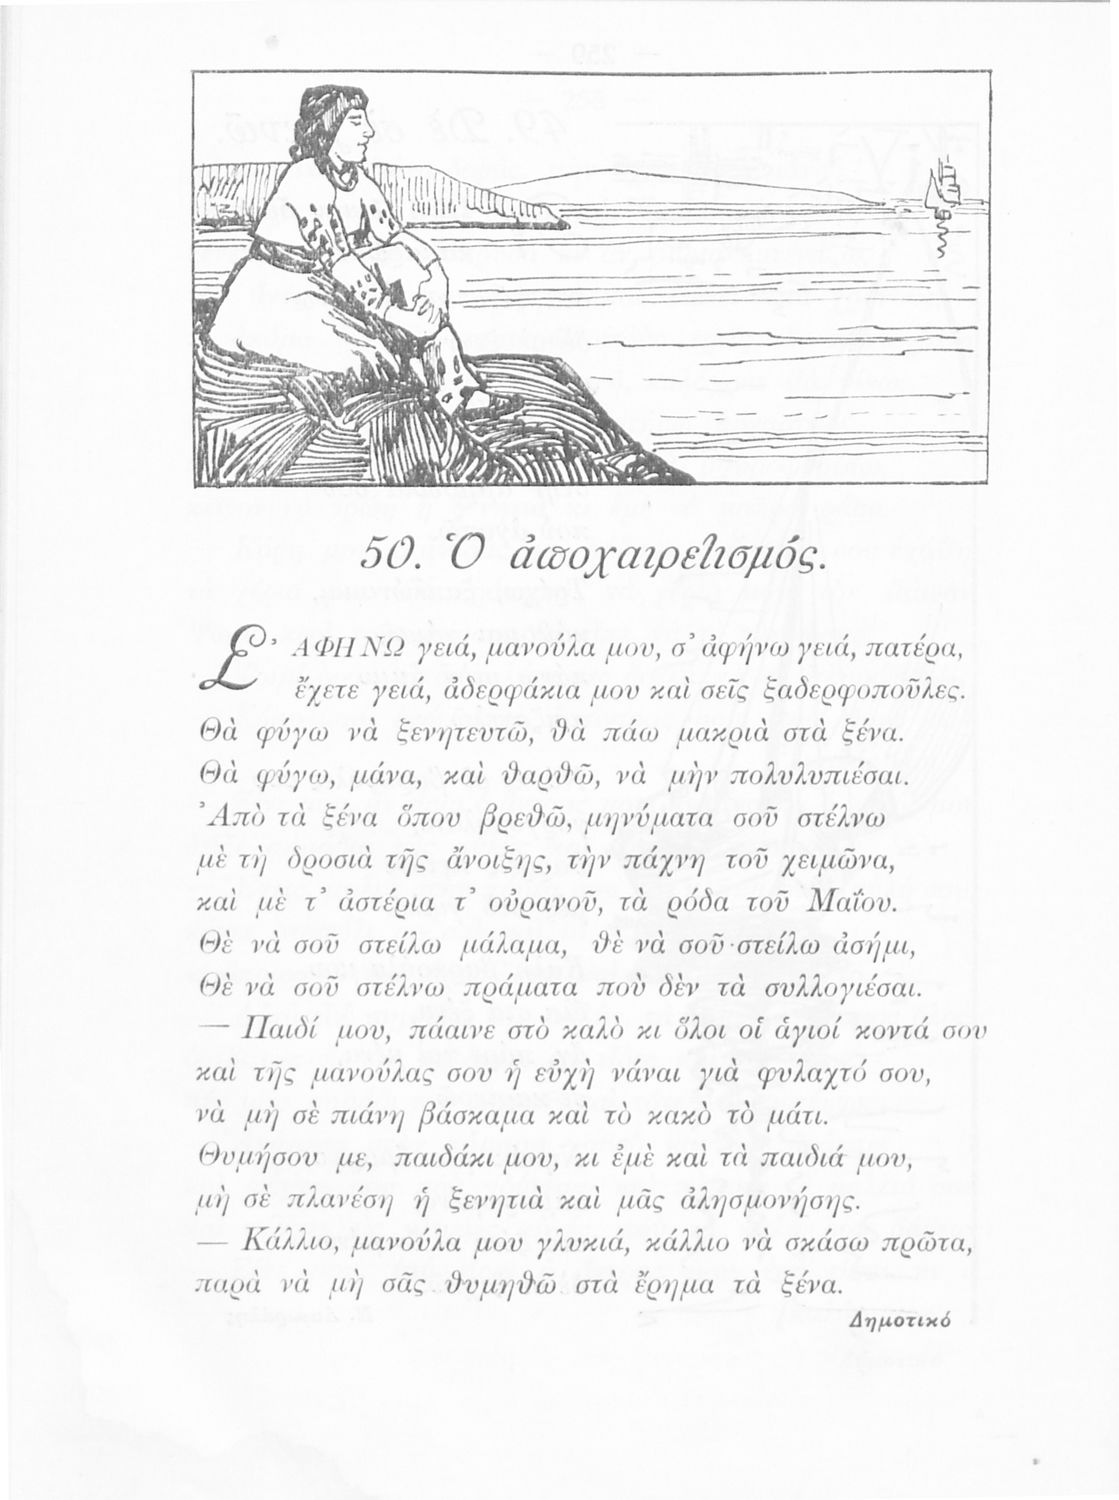 50. Ὁ ἀποχαιρετισμός.
Σ’ ΑΦΗΝΩ γειά, μανούλα μου, σ’ ἀφήνω γειά, πατέρα,
ἔχετε γειά, ἀδερφάκια μου καὶ σεῖς ξαδερφοποῦλες.
Θὰ φύγω νὰ ξενητευτῶ, θὰ πάω μακριὰ στὰ ξένα.
Θὰ φύγω, μάνα, καὶ θαρθῶ, νὰ μὴν πολυλυπιέσαι.
Ἀπὸ τὰ ξένα ὅπου βρεθῶ, μηνύματα σοῦ στέλνω
μὲ τὴ δροσιὰ τῆς ἄνοιξης, τὴν πάχνη τοῦ χειμῶνα,
καὶ μὲ τ’ ἀστέρια τ’ οὐρανοῦ, τὰ ρόδα τοῦ Μαΐου.
Θὲ νὰ σοῦ στείλω μάλαμα, θὲ νὰ σοῦ στείλω ἀσήμι,
Θὲ νὰ σοῦ στέλνω πράματα ποὺ δὲν τὰ συλλογιέσαι.
— Παιδί μου, πάαινε στὸ καλὸ κι ὅλοι οἱ ἁγιοί κοντά σου
καὶ τῆς μανούλας σου ἡ εὐχὴ νάναι γιὰ φυλαχτό σου,
νὰ μὴ σὲ πιάνη βάσκαμα καὶ τὸ κακὸ τὸ μάτι.
Θυμήσου με, παιδάκι μου, κι ἐμὲ καὶ τὰ παιδιά μου,
μὴ σὲ πλανέση ἡ ξενητιὰ καὶ μᾶς ἀλησμονήσης.
— Κάλλιο, μανούλα μου γλυκιά, κάλλιο νὰ σκάσω πρῶτα,
παρὰ νὰ μὴ σᾶς θυμηθῶ στὰ ἔρημα τὰ ξένα.
Δημοτικό